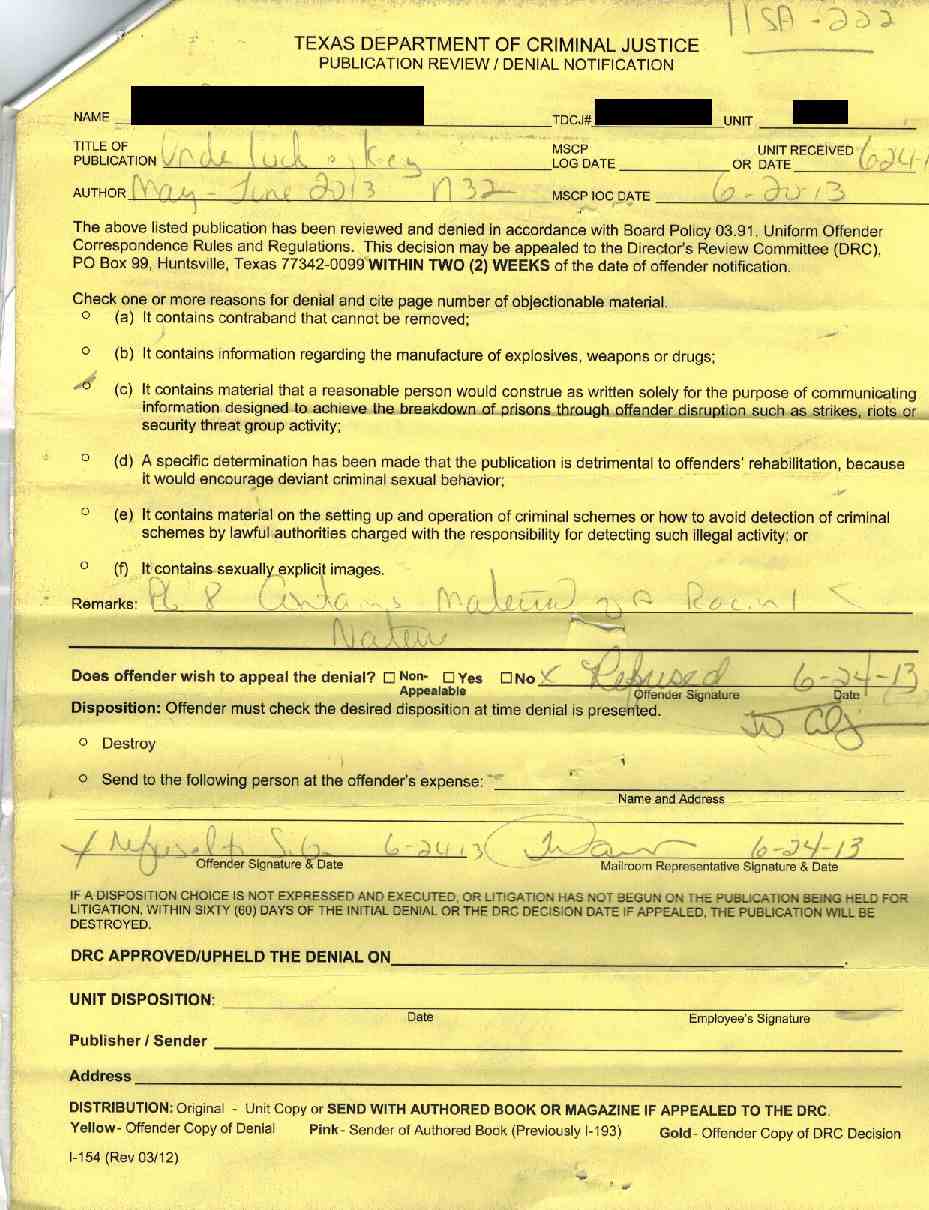 11SA-222
TEXAS DEPARTMENT OF CRIMINAL JUSTICE
PUBLICATION REVIEW / DENIAL NOTIFICATION
NAME TDCJ# UNIT
TITLE OF PUBLICATION Unde lock & Key MSCP LOG DATE OR UNIT RECEIVED DATE 6-24-1
AUTHOR May - June 2013 N 32 MSCP IOC DATE 6-20-13
The above listed publication has been reviewed and denied in accordance with Board Policy 03.91, Uniform Offender
Correspondence Rules and Regulations. This decision may be appealed to the Director's Review Committee (DRC),
PO Box 99, Huntsville, Texas 77342-0099 WITHIN TWO (2) WEEKS of the date of offender notification.
Check one or more reasons for denial and cite page number of objectionable material.
(a) It contains contraband that cannot be removed;
(b) It contains information regarding the manufacture of explosives, weapons or drugs;
(c) It contains material that a reasonable person would construe as written solely for the purpose of communicating
information designed to achieve the breakdown of prisons through offender disruption such as strikes, riots or
security threat group activity;
(d) A specific determination has been made that the publication is detrimental to offenders' rehabilitation, because
it would encourage deviant criminal sexual behavior;
(e) It contains material on the setting up and operation of criminal schemes or how to avoid detection of criminal
schemes by lawful authorities charged with the responsibility for detecting such illegal activity; or
(f) It contains sexually explicit images.
Remarks: PG 8 Contains Material of a
Does offender wish to appeal the denial? Non-Appealable Yes No X Refused 6-24-13
Offender Signature Date
Disposition: Offender must check the desired disposition at time denial is presented.
Destroy
Send to the following person at the offender's expense:
Name and Address
X Refused to Sign 6-24-13 6-24-13
Offender Signature & Date Mailroom Representative Signature & Date
IF A DISPOSITION CHOICE IS NOT EXPRESSED AND EXECUTED, OR LITIGATION HAS NOT BEGUN ON THE PUBLICATION BEING HELD FOR
LITIGATION, WITHIN SIXTY (60) DAYS OF THE INITIAL DENIAL OR THE DRC DECISION DATE IF APPEALED, THE PUBLICATION WILL BE
DESTROYED.
DRC APPROVED/UPHELD THE DENIAL ON .
UNIT DISPOSITION:
Date Employee's Signature
Publisher / Sender
Address
DISTRIBUTION: Original - Unit Copy or SEND WITH AUTHORED BOOK OR MAGAZINE IF APPEALED TO THE DRC.
Yellow - Offender Copy of Denial Pink - Sender of Authored Book (Previously I-193) Gold - Offender Copy of DRC Decision
I-154 (Rev 03/12)